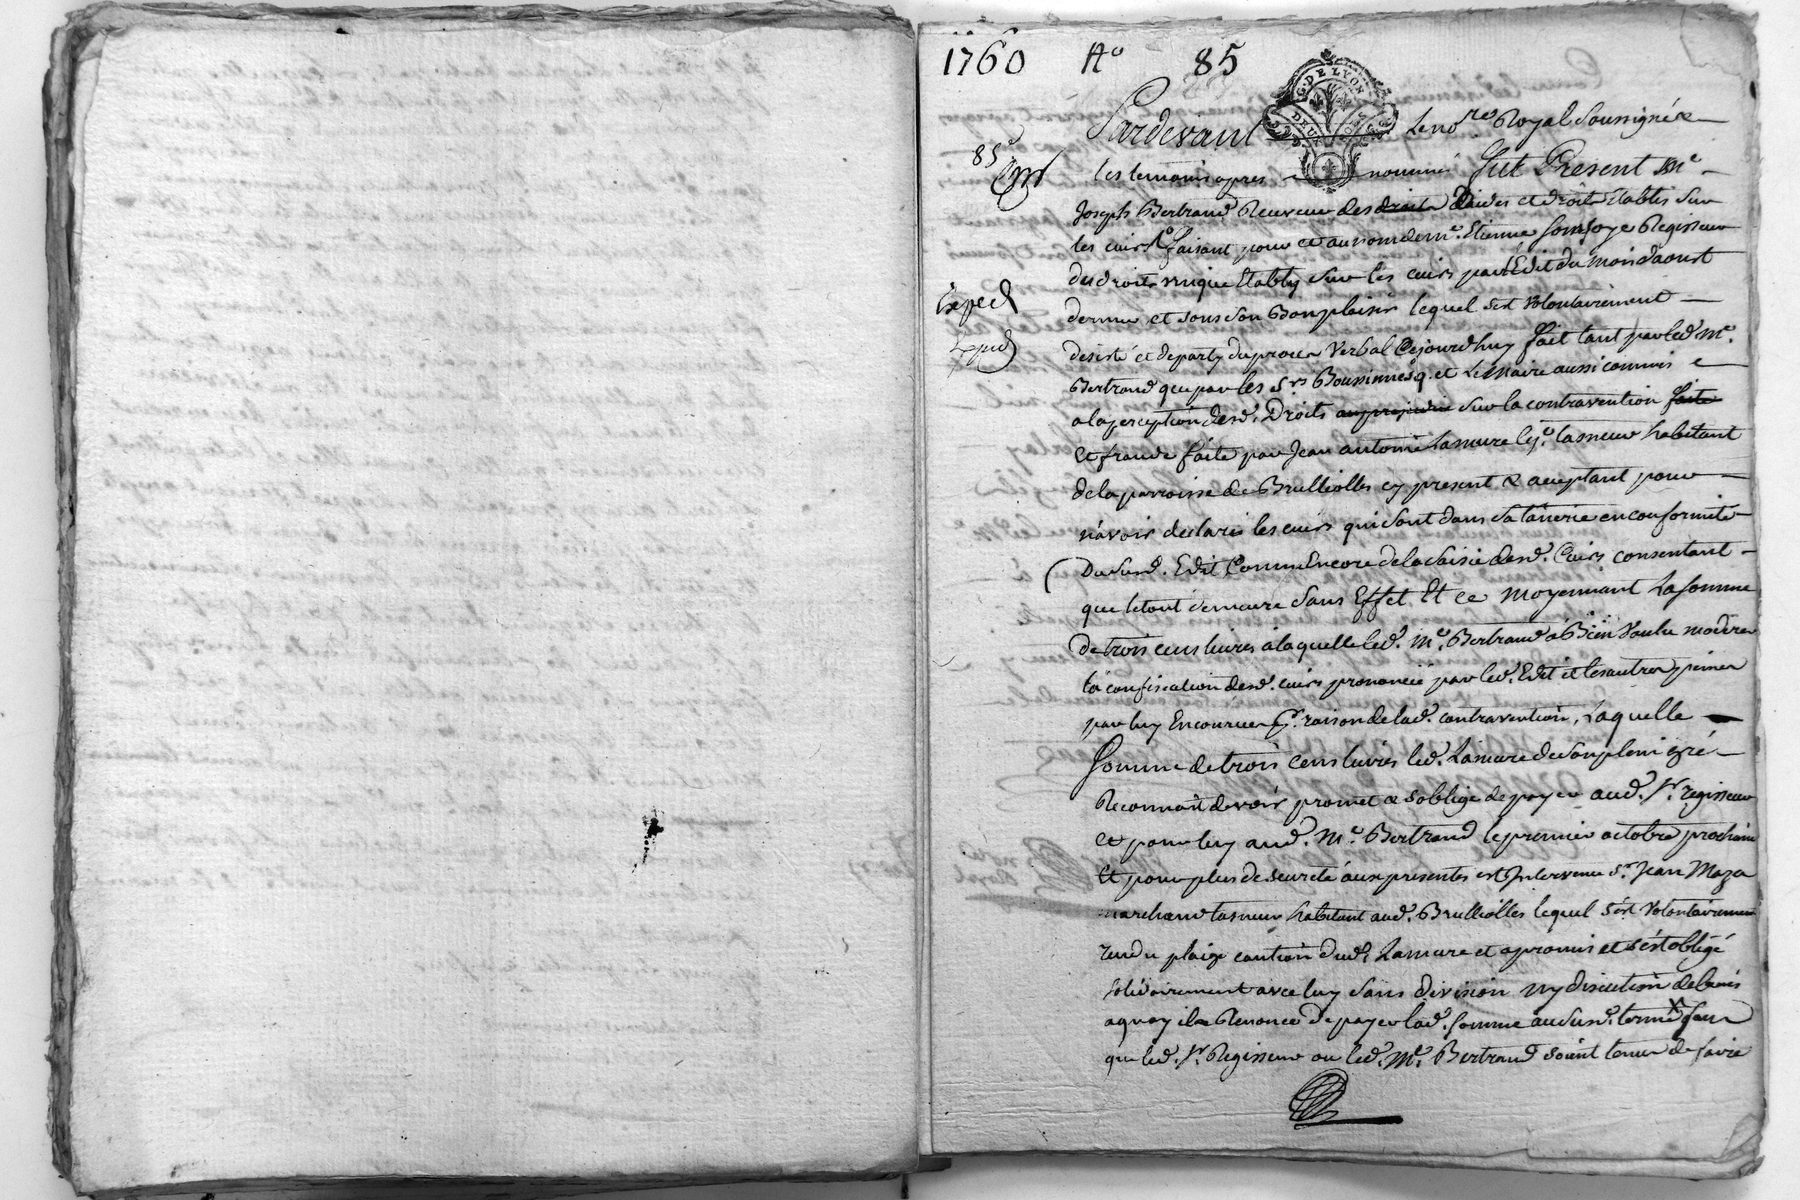 1760 No 85
G. DE LYON
DEUX SOLS
85e
Pardevant Le nore Royal Soussigné &
les temoins apres nommés fut Present Me
Joseph Bertrand Receveur des droits daides et droits établis sur
les cuirs faisant pour et au nom de Mr. Etienne Somsoye Regisseur
des droits unique Etably sur les cuirs par l'Edit du mois daoust
dernier et sous son Bon plaisir lequel s'est volontairement
desisté et departy du proces verbal Cejourdhuy fait tant par led. Me.
Bertrand que par les Srs Boussimesq. et Lemaire aussi commis
a la perception desd. Droits au prejudice sur la contravention faite
Et fraude faite par Jean antoine Lamure taneur habitant
de la parroisse de Brulliolles cy present & acceptant pour
n'avoir declaré les cuirs qui sont dans sa tanerie en conformité
Dususd. Edit Comme Encore de la saisie desd. Cuirs consentant
que le tout demeure sans Effet Et ce moyennant La somme
de trois cens livres a laquelle led. Me. Bertrand a Bien voulu moderer
la confiscation desd. cuirs prononcée par led. Edit et les autres peines
par luy Encourues pr. raison de lad. contravention, Laquelle
Somme de trois cens livres led. Lamure de son plein gré
Reconnoit devoir promet & soblige de payer aud. Sr. regisseur
et pour luy aud. Me. Bertrand le premier octobre prochain
Et pour plus de seureté aux presentes est Intervenu Sr. Jean Maza
marchand taneur habitant aud. Brulliolles lequel s'est volontairement
rendu plaige caution dud. Lamure et a promis et s'est obligé
solidairement avec luy sans division ny discution de biens
a quoy il a Renoncé de payer lad. somme au susd. terme sans
que led. Sr. Regisseur ou led. Me. Bertrand soient tenus de faire
Exped
Exped